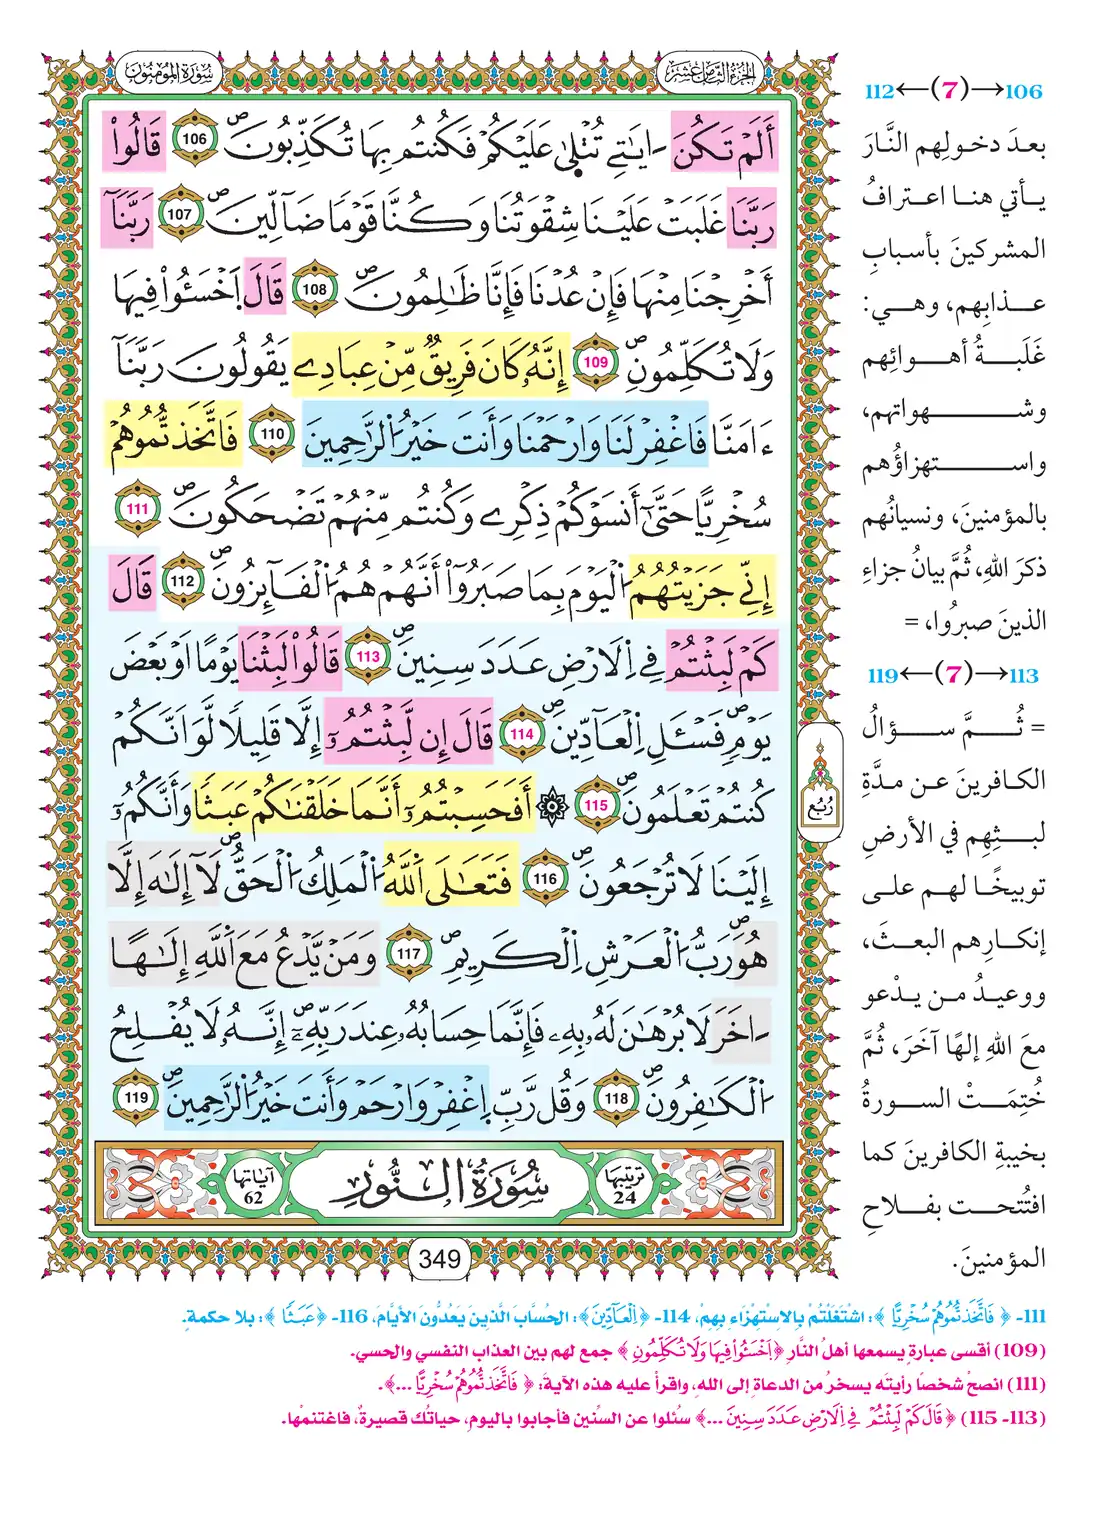 سُورَةُ المُؤْمِنُونَ
الجُزْءُ الثَّامِنَ عَشَرَ
أَلَمْ تَكُنَ ـايَٰتِے تُتْلَىٰ عَلَيْكُمْ فَكُنتُم بِهَا تُكَذِّبُونَۖ 106 قَالُواْ
رَبَّنَا غَلَبَتْ عَلَيْنَا شِقْوَتُنَا وَكُنَّا قَوْمٗا ضَآلِّينَۖ 107 رَبَّنَآ
أَخْرِجْنَا مِنْهَا فَإِنْ عُدْنَا فَإِنَّا ظَٰلِمُونَۖ 108 قَالَ اَخْسَـُٔواْ فِيهَا
وَلَا تُكَلِّمُونِۖ 109 إِنَّهُۥ كَانَ فَرِيقٞ مِّنْ عِبَادِے يَقُولُونَ رَبَّنَآ
ءَامَنَّا فَاغْفِرْ لَنَا وَارْحَمْنَا وَأَنتَ خَيْرُ اُلرَّٰحِمِينَ 110 فَاتَّخَذتُّمُوهُمْ
سُخْرِيّاً حَتَّىٰٓ أَنسَوْكُمْ ذِكْرِے وَكُنتُم مِّنْهُمْ تَضْحَكُونَۖ 111
إِنِّے جَزَيْتُهُمُ اُلْيَوْمَ بِمَا صَبَرُوٓاْ أَنَّهُمْ هُمُ اُلْفَآئِزُونَۖ 112 قَالَ
كَمْ لَبِثْتُمْ فِے اِلَارْضِ عَدَدَ سِنِينَۖ 113 قَالُواْ لَبِثْنَا يَوْماً اَوْ بَعْضَ
يَوْمٖۖ فَسْـَٔلِ اِلْعَآدِّينَۖ 114 قَالَ إِن لَّبِثْتُمُۥٓ إِلَّا قَلِيلاٗ لَّوَ اَنَّكُمْ
كُنتُمْ تَعْلَمُونَۖ 115 ۞ أَفَحَسِبْتُمُۥٓ أَنَّمَا خَلَقْنَٰكُمْ عَبَثاٗ وَأَنَّكُمُۥٓ
إِلَيْنَا لَا تُرْجَعُونَۖ 116 فَتَعَٰلَى اَللَّهُ اُلْمَلِكُ اُلْحَقُّۖ لَآ إِلَٰهَ إِلَّا
هُوَۖ رَبُّ اُلْعَرْشِ اِلْكَرِيمِۖ 117 وَمَنْ يَّدْعُ مَعَ اَللَّهِ إِلَٰهاً
ـاخَرَ لَا بُرْهَٰنَ لَهُۥ بِهِۦ فَإِنَّمَا حِسَابُهُۥ عِندَ رَبِّهِۦٓۖ إِنَّهُۥ لَا يُفْلِحُ
اُلْكَٰفِرُونَۖ 118 وَقُل رَّبِّ اِغْفِرْ وَارْحَمْ وَأَنتَ خَيْرُ اُلرَّٰحِمِينَۖ 119
رُبُع
ترتيبها 24
سُورَةُ اُلنُّورِ
آياتها 62
349
106→(7)←112
بعدَ دخولِهم النَّارَ
يأتي هنا اعترافُ
المشركينَ بأسبابِ
عذابِهم، وهي:
غَلَبةُ أهوائِهم
وشهواتهم،
واستهزاؤُهم
بالمؤمنينَ، ونسيانُهم
ذكرَ اللهِ، ثُمَّ بيانُ جزاءِ
الذينَ صبرُوا، =
113→(7)←119
= ثُمَّ سؤالُ
الكافرينَ عن مدَّةِ
لبثِهِم في الأرضِ
توبيخًا لهم على
إنكارِهم البعثَ،
ووعيدُ من يدْعو
معَ اللهِ إلهًا آخَرَ، ثُمَّ
خُتِمَتْ السورةُ
بخيبةِ الكافرينَ كما
افتُتحت بفلاحِ
المؤمنينَ.
111- ﴿فَاتَّخَذتُّمُوهُمْ سُخْرِيّاً﴾: اشْتَغَلْتُمْ بِالاِسْتِهْزَاءِ بِهِمْ، 114- ﴿اِلْعَآدِّينَ﴾: الحُسَّابَ الَّذِينَ يَعُدُّونَ الأَيَّامَ، 116- ﴿عَبَثاٗ﴾: بلا حكمةٍ.
(109) أقسى عبارةٍ يسمعها أهلُ النَّارِ ﴿اَخْسَـُٔواْ فِيهَا وَلَا تُكَلِّمُونِ﴾ جمع لهم بين العذاب النفسي والحسي.
(111) انصحْ شخصًا رأيتَه يسخرُ من الدعاةِ إلى اللهِ، واقرأْ عليه هذه الآيةَ: ﴿فَاتَّخَذتُّمُوهُمْ سُخْرِيّاً ...﴾.
(113- 115) ﴿قَالَ كَمْ لَبِثْتُمْ فِے اِلَارْضِ عَدَدَ سِنِينَ ...﴾ سُئلوا عن السِّنين فأجابوا باليومِ، حياتُك قصيرةٌ، فاغتنمْها.